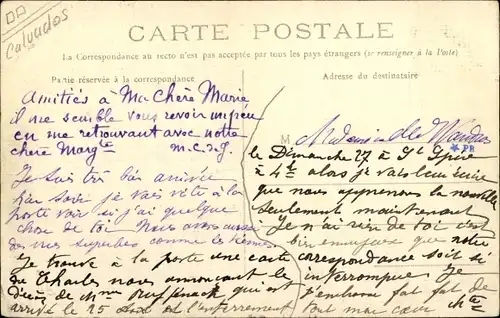 Calvados
CARTE POSTALE
La Correspondance au recto n'est pas acceptée par tous les pays étrangers (se renseigner à la Poste)
Partie réservée à la correspondance
Adresse du destinataire
Amitiés à Ma Chère Marie
il me semble vous revoir un peu
en me retrouvant avec notre
chère Margte M.C.d.J.
Je suis très bien arrivée
hier soir je vais vite à la
porte voir si j'ai quelque
chose de toi Nous avons aussi
des mers superbes comme les
Je trouve à la porte une carte
de Charles nous annonçant le
Décès de Mme qui est
arrivé le 25 l'enterrement
M Mademoiselle
PR
le Dimanche 27 à St
à 4h alors je vais leur écrire
que nous apprenons la nouvelle
seulement maintenant
Je n'ai rien de toi c'est
bien ennuyeux que notre
correspondance soit si
interrompue Je
t'embrasse fort de
tout mon cœur